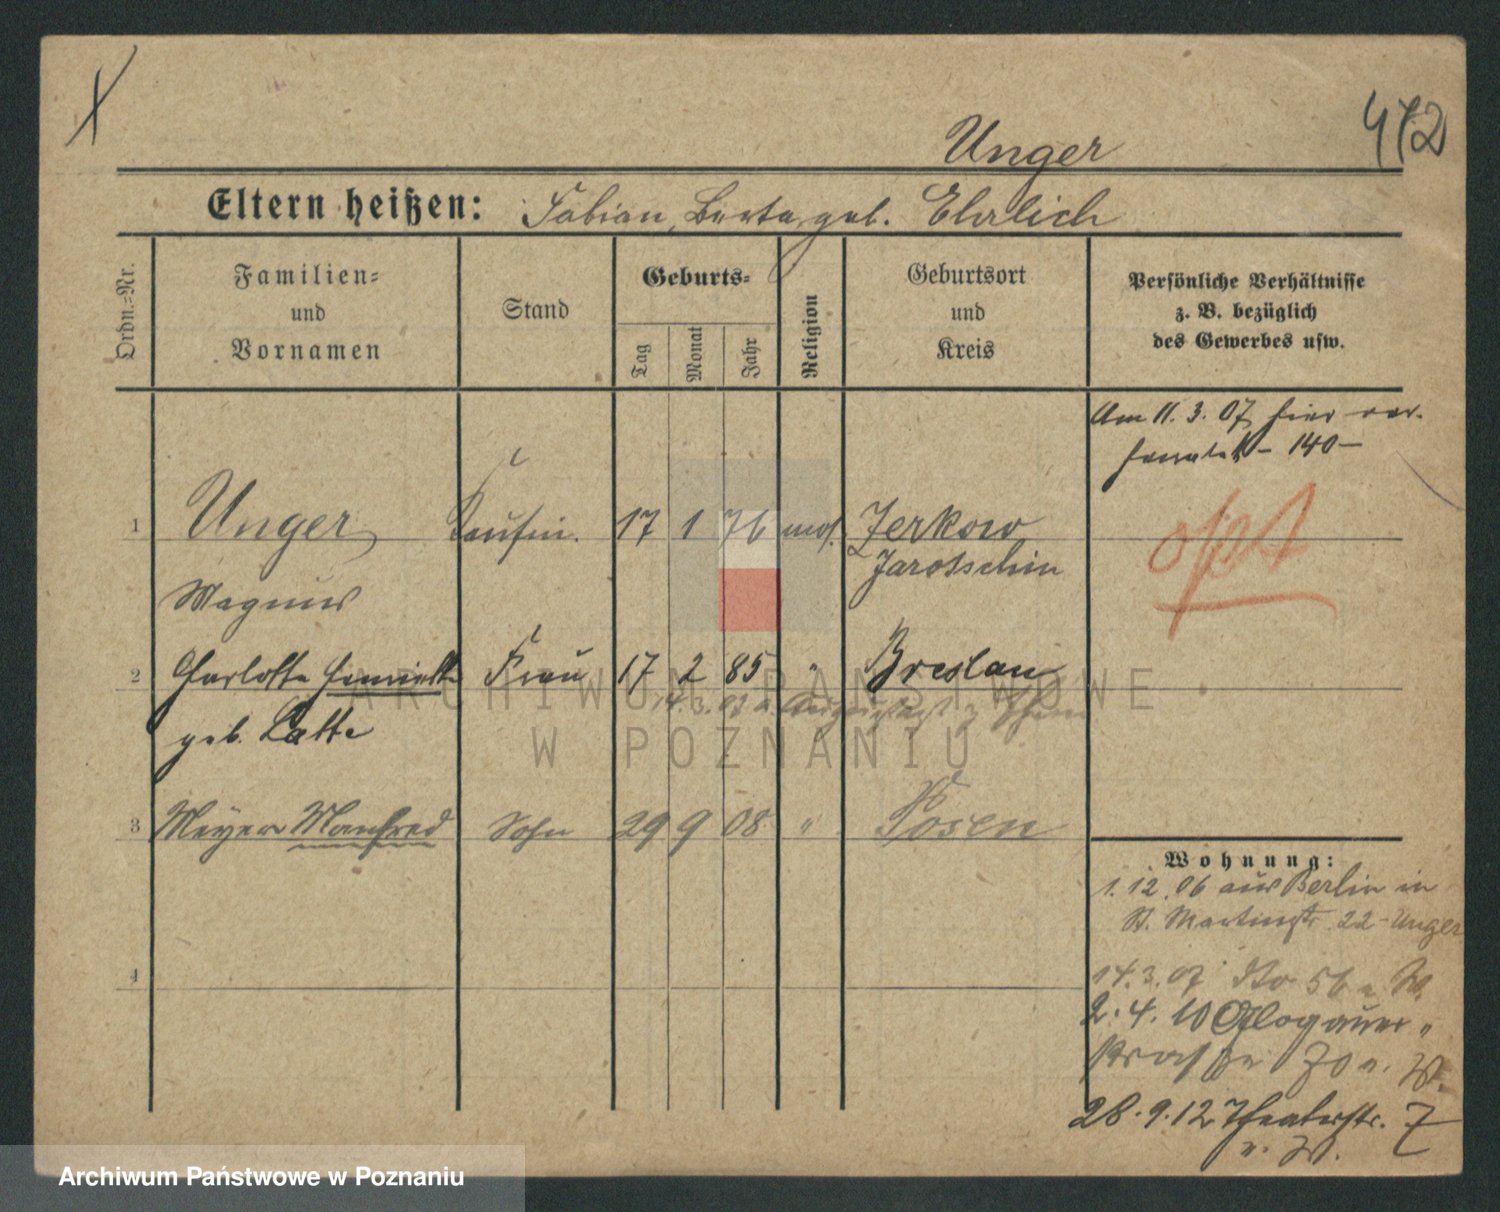 Unger
472
Eltern heißen: Fabian, Berta, geb. Ehrlich
Ordn.=Nr.
Familien=
und
Vornamen
Stand
Geburts=
Tag
Monat
Jahr
Religion
Geburtsort
und
Kreis
Persönliche Verhältnisse
z. B. bezüglich
des Gewerbes usw.
Am 11. 3. 07 hier ver-
heiratet - 140 -
1 Unger Kaufm. 17 1 76 mos. Zerkow
Jarotschin
Magnus
2 Charlotte Henriette Frau 17 2 85 " Breslau
geb. Latte
14.3.07 v.
3 Meyer Manfred Sohn 29 9 08 " Posen
4
Wohnung:
1. 12. 06 aus Berlin in
St. Martinstr. 22 - Unger
14.3.07 dto 56 u. W.
2. 4. 10 Glogauer
strasse 70 u. W.
28. 9. 12 Theaterstr. 7
u. W.
ARCHIWUM PAŃSTWOWE
W POZNANIU
Archiwum Państwowe w Poznaniu